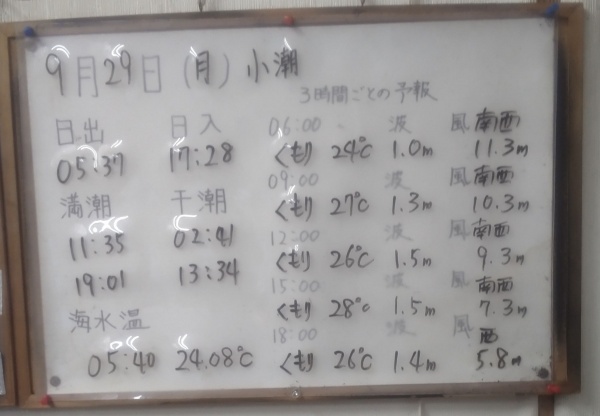 9月29日(月)小潮
3時間ごとの予報
日出 日入
05:37 17:28
満潮 干潮
11:35 02:41
19:01 13:34
海水温
05:40 24.08℃
06:00 ~ 波 風 南西
くもり 24℃ 1.0m 11.3m
09:00 波 風 南西
くもり 27℃ 1.3m 10.3m
12:00 波 風 南西
くもり 26℃ 1.5m 9.3m
15:00 波 風 南西
くもり 28℃ 1.5m 7.3m
18:00 波 風 西
くもり 26℃ 1.4m 5.8m